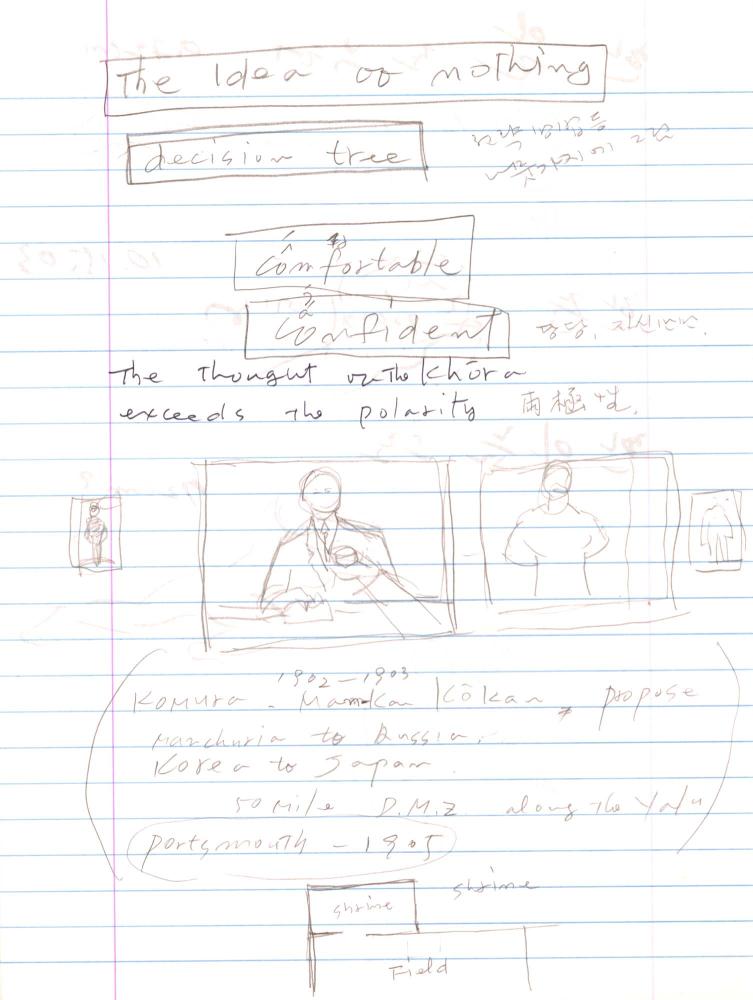 The Idea of nothing
decision tree
comfortable
confident 당당, 자신만만.
The thought on the Khōra
exceeds the polarity 両極性.
1902-1903
Komura - Man-Kan Kōkan propose
Manchuria to Russia,
Korea to Japan.
50 mile D.M.Z. along the Yalu
Portsmouth - 1905
shrine
shrine
Field